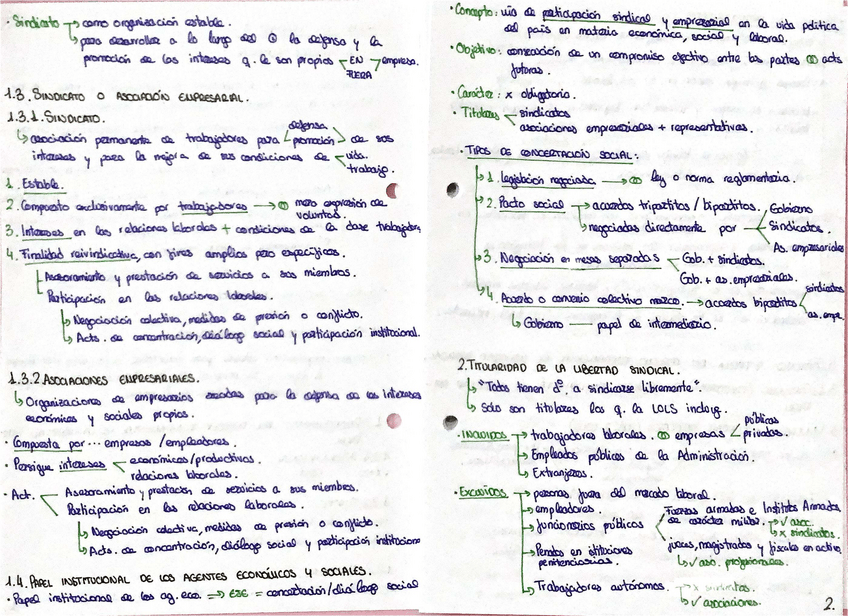 · Sindicato → como organización estable.
→ para desarrollar a lo largo del la defensa y la
promoción de los intereses q. le son propios EN empresa.
FUERA
1.3. SINDICATO O ASOCIACIÓN EMPRESARIAL.
1.3.1. SINDICATO.
↳ asociación permanente de trabajadores para defensa promoción de sus
intereses y para la mejora de sus condiciones de vida.
trabajo.
1. Estable.
2. Compuesto exclusivamente por trabajadores → mera expresión de
voluntad.
3. Intereses en las relaciones laborales + condiciones de la clase trabajadora
4. Finalidad reivindicativa, con fines amplios pero específicos.
Asesoramiento y prestación de servicios a sus miembros.
Participación en las relaciones laborales.
↳ Negociación colectiva, medidas de presión o conflicto.
↳ Acts. de concentración, diálogo social y participación institucional.
1.3.2 ASOCIACIONES EMPRESARIALES.
↳ Organizaciones de empresarios creadas para la defensa de los intereses
económicos y sociales propios.
· Compuesta por... empresas / empleadores.
· Persigue intereses económicos/productivos.
relaciones laborales.
· Act. Asesoramiento y prestación de servicios a sus miembros.
Participación en las relaciones laborales.
↳ Negociación colectiva, medidas de presión o conflicto.
↳ Acts. de concentración, diálogo social y participación institucional
1.4. PAPEL INSTITUCIONAL DE LOS AGENTES ECONÓMICOS Y SOCIALES.
· Papel institucional de los ag. eco. ⇒ = concertación/diálogo social
· Concepto: vía de participación sindical y empresarial en la vida política
del país en materia económica, social y laboral.
· Objetivo: consecución de un compromiso efectivo entre las partes acts
futuras.
· Carácter: x obligatorio.
· Titulares sindicatos
asociaciones empresariales + representativas.
· TIPOS DE CONCERTACIÓN SOCIAL:
1. Legislación negociada → ley o norma reglamentaria.
2. Pacto social → acuerdos tripartitos / bipartitos.
↳ negociadas directamente por Gobierno
Sindicatos.
As. empresariales
3. Negociación en mesas separadas Gob. + sindicatos.
Gob. + as. empresariales.
4. Acuerdo o convenio colectivo marco. → acuerdos bipartitos sindicatos
as. empre.
↳ Gobierno — papel de intermediario.
2. TITULARIDAD DE LA LIBERTAD SINDICAL.
↳ "Todos tienen a sindicarse libremente".
↳ Solo son titulares los q. la LOLS incluye.
· INCLUIDOS → trabajadores laborales. empresas públicas
privadas.
→ Empleados públicos de la Administración.
→ Extranjeros.
· EXCLUIDOS → personas fuera del mercado laboral.
→ empleadores.
→ funcionarios públicos Fuerzas armadas e Institutos Armados
de carácter militar. → ✓ asoc.
→ x sindicatos.
jueces, magistrados y fiscales en activo
↳ ✓ aso. profesionales.
→ Penados en instituciones
penitenciarias.
→ Trabajadores autónomos. → x sindicatos.
↳ ✓ asociaciones.
2.